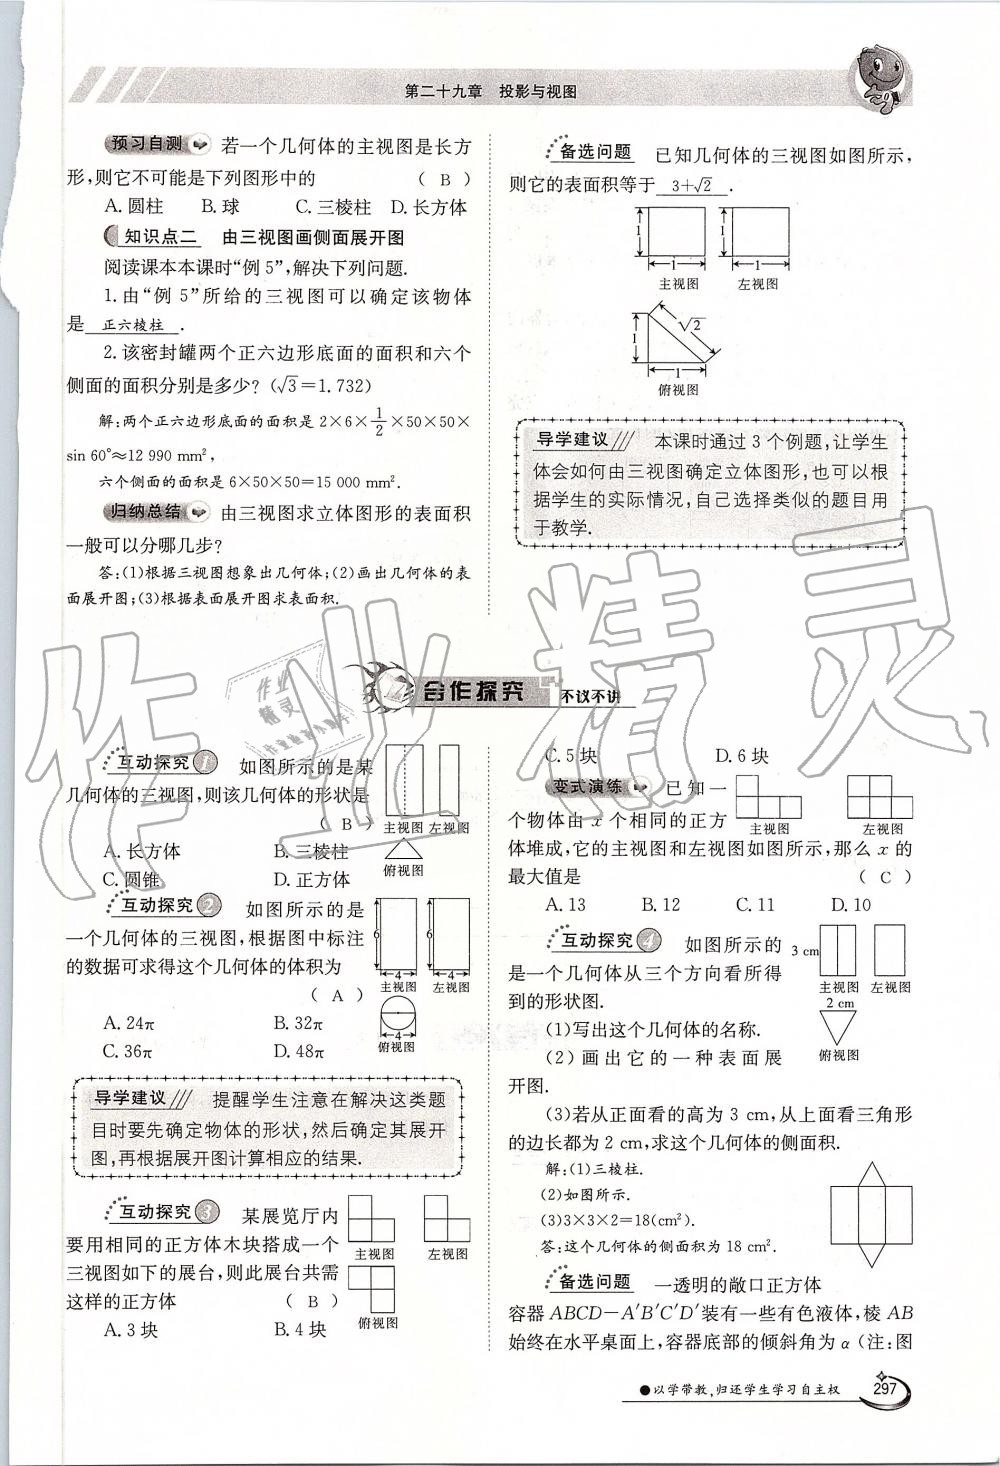 第二十九章　投影与视图
预习自测　若一个几何体的主视图是长方
形,则它不可能是下列图形中的　（ B ）
A.圆柱　B.球　C.三棱柱　D.长方体
知识点二　由三视图画侧面展开图
阅读课本本课时“例 5”,解决下列问题.
1.由“例 5”所给的三视图可以确定该物体
是 正六棱柱 .
2.该密封罐两个正六边形底面的面积和六个
侧面的面积分别是多少?(√3=1.732)
解:两个正六边形底面的面积是 2×6×1/2×50×50×
sin 60°≈12 990 mm²,
六个侧面的面积是 6×50×50=15 000 mm².
归纳总结　由三视图求立体图形的表面积
一般可以分哪几步?
答:(1)根据三视图想象出几何体;(2)画出几何体的表
面展开图;(3)根据表面展开图求表面积.
备选问题　已知几何体的三视图如图所示,
则它的表面积等于 3+√2 .
1　1　1
主视图　左视图
1　√2　1
俯视图
导学建议　本课时通过 3 个例题,让学生
体会如何由三视图确定立体图形,也可以根
据学生的实际情况,自己选择类似的题目用
于教学.
合作探究　不议不讲
互动探究 1　如图所示的是某
几何体的三视图,则该几何体的形状是
（ B ）
A.长方体　B.三棱柱
C.圆锥　D.正方体
主视图 左视图
俯视图
互动探究 2　如图所示的是
一个几何体的三视图,根据图中标注
的数据可求得这个几何体的体积为
（ A ）
A.24π　B.32π
C.36π　D.48π
6　6
4　4
主视图 左视图
4
俯视图
导学建议　提醒学生注意在解决这类题
目时要先确定物体的形状,然后确定其展开
图,再根据展开图计算相应的结果.
互动探究 3　某展览厅内
要用相同的正方体木块搭成一个
三视图如下的展台,则此展台共需
这样的正方体　（ B ）
A.3 块　B.4 块
主视图　左视图
俯视图
C.5 块　D.6 块
变式演练　已知一
个物体由 x 个相同的正方
体堆成,它的主视图和左视图如图所示,那么 x 的
最大值是　（ C ）
A.13　B.12　C.11　D.10
主视图　左视图
互动探究 4　如图所示的
是一个几何体从三个方向看所得
到的形状图.
(1)写出这个几何体的名称.
(2)画出它的一种表面展
开图.
(3)若从正面看的高为 3 cm,从上面看三角形
的边长都为 2 cm,求这个几何体的侧面积.
3 cm
主视图 左视图
2 cm
俯视图
解:(1)三棱柱.
(2)如图所示.
(3)3×3×2=18(cm²).
答:这个几何体的侧面积为 18 cm².
备选问题　一透明的敞口正方体
容器 ABCD-A′B′C′D′装有一些有色液体,棱 AB
始终在水平桌面上,容器底部的倾斜角为 α(注:图
●以学带教,归还学生学习自主权
297
作业精灵